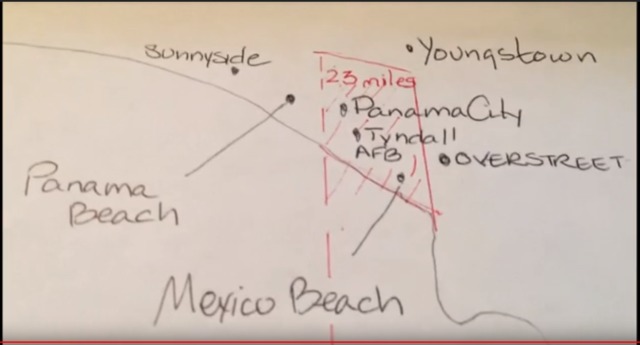 Sunnyside
Youngstown
23 miles
Panama City
Tyndall
AFB
OVERSTREET
Panama
Beach
Mexico Beach